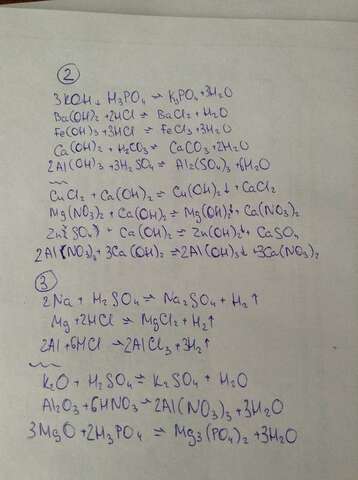 2
3KOH + H₃PO₄ ⇌ K₃PO₄ + 3H₂O
Ba(OH)₂ + 2HCl ⇌ BaCl₂ + H₂O
Fe(OH)₃ + 3HCl ⇌ FeCl₃ + 3H₂O
Ca(OH)₂ + H₂CO₃ ⇌ CaCO₃ + 2H₂O
2Al(OH)₃ + 3H₂SO₄ ⇌ Al₂(SO₄)₃ + 6H₂O
CuCl₂ + Ca(OH)₂ ⇌ Cu(OH)₂↓ + CaCl₂
Mg(NO₃)₂ + Ca(OH)₂ ⇌ Mg(OH)₂↓ + Ca(NO₃)₂
ZnSO₄ + Ca(OH)₂ ⇌ Zn(OH)₂↓ + CaSO₄
2Al(NO₃)₃ + 3Ca(OH)₂ ⇌ 2Al(OH)₃↓ + 3Ca(NO₃)₂
3
2Na + H₂SO₄ ⇌ Na₂SO₄ + H₂↑
Mg + 2HCl ⇌ MgCl₂ + H₂↑
2Al + 6HCl ⇌ 2AlCl₃ + 3H₂↑
K₂O + H₂SO₄ ⇌ K₂SO₄ + H₂O
Al₂O₃ + 6HNO₃ ⇌ 2Al(NO₃)₃ + 3H₂O
3MgO + 2H₃PO₄ ⇌ Mg₃(PO₄)₂ + 3H₂O